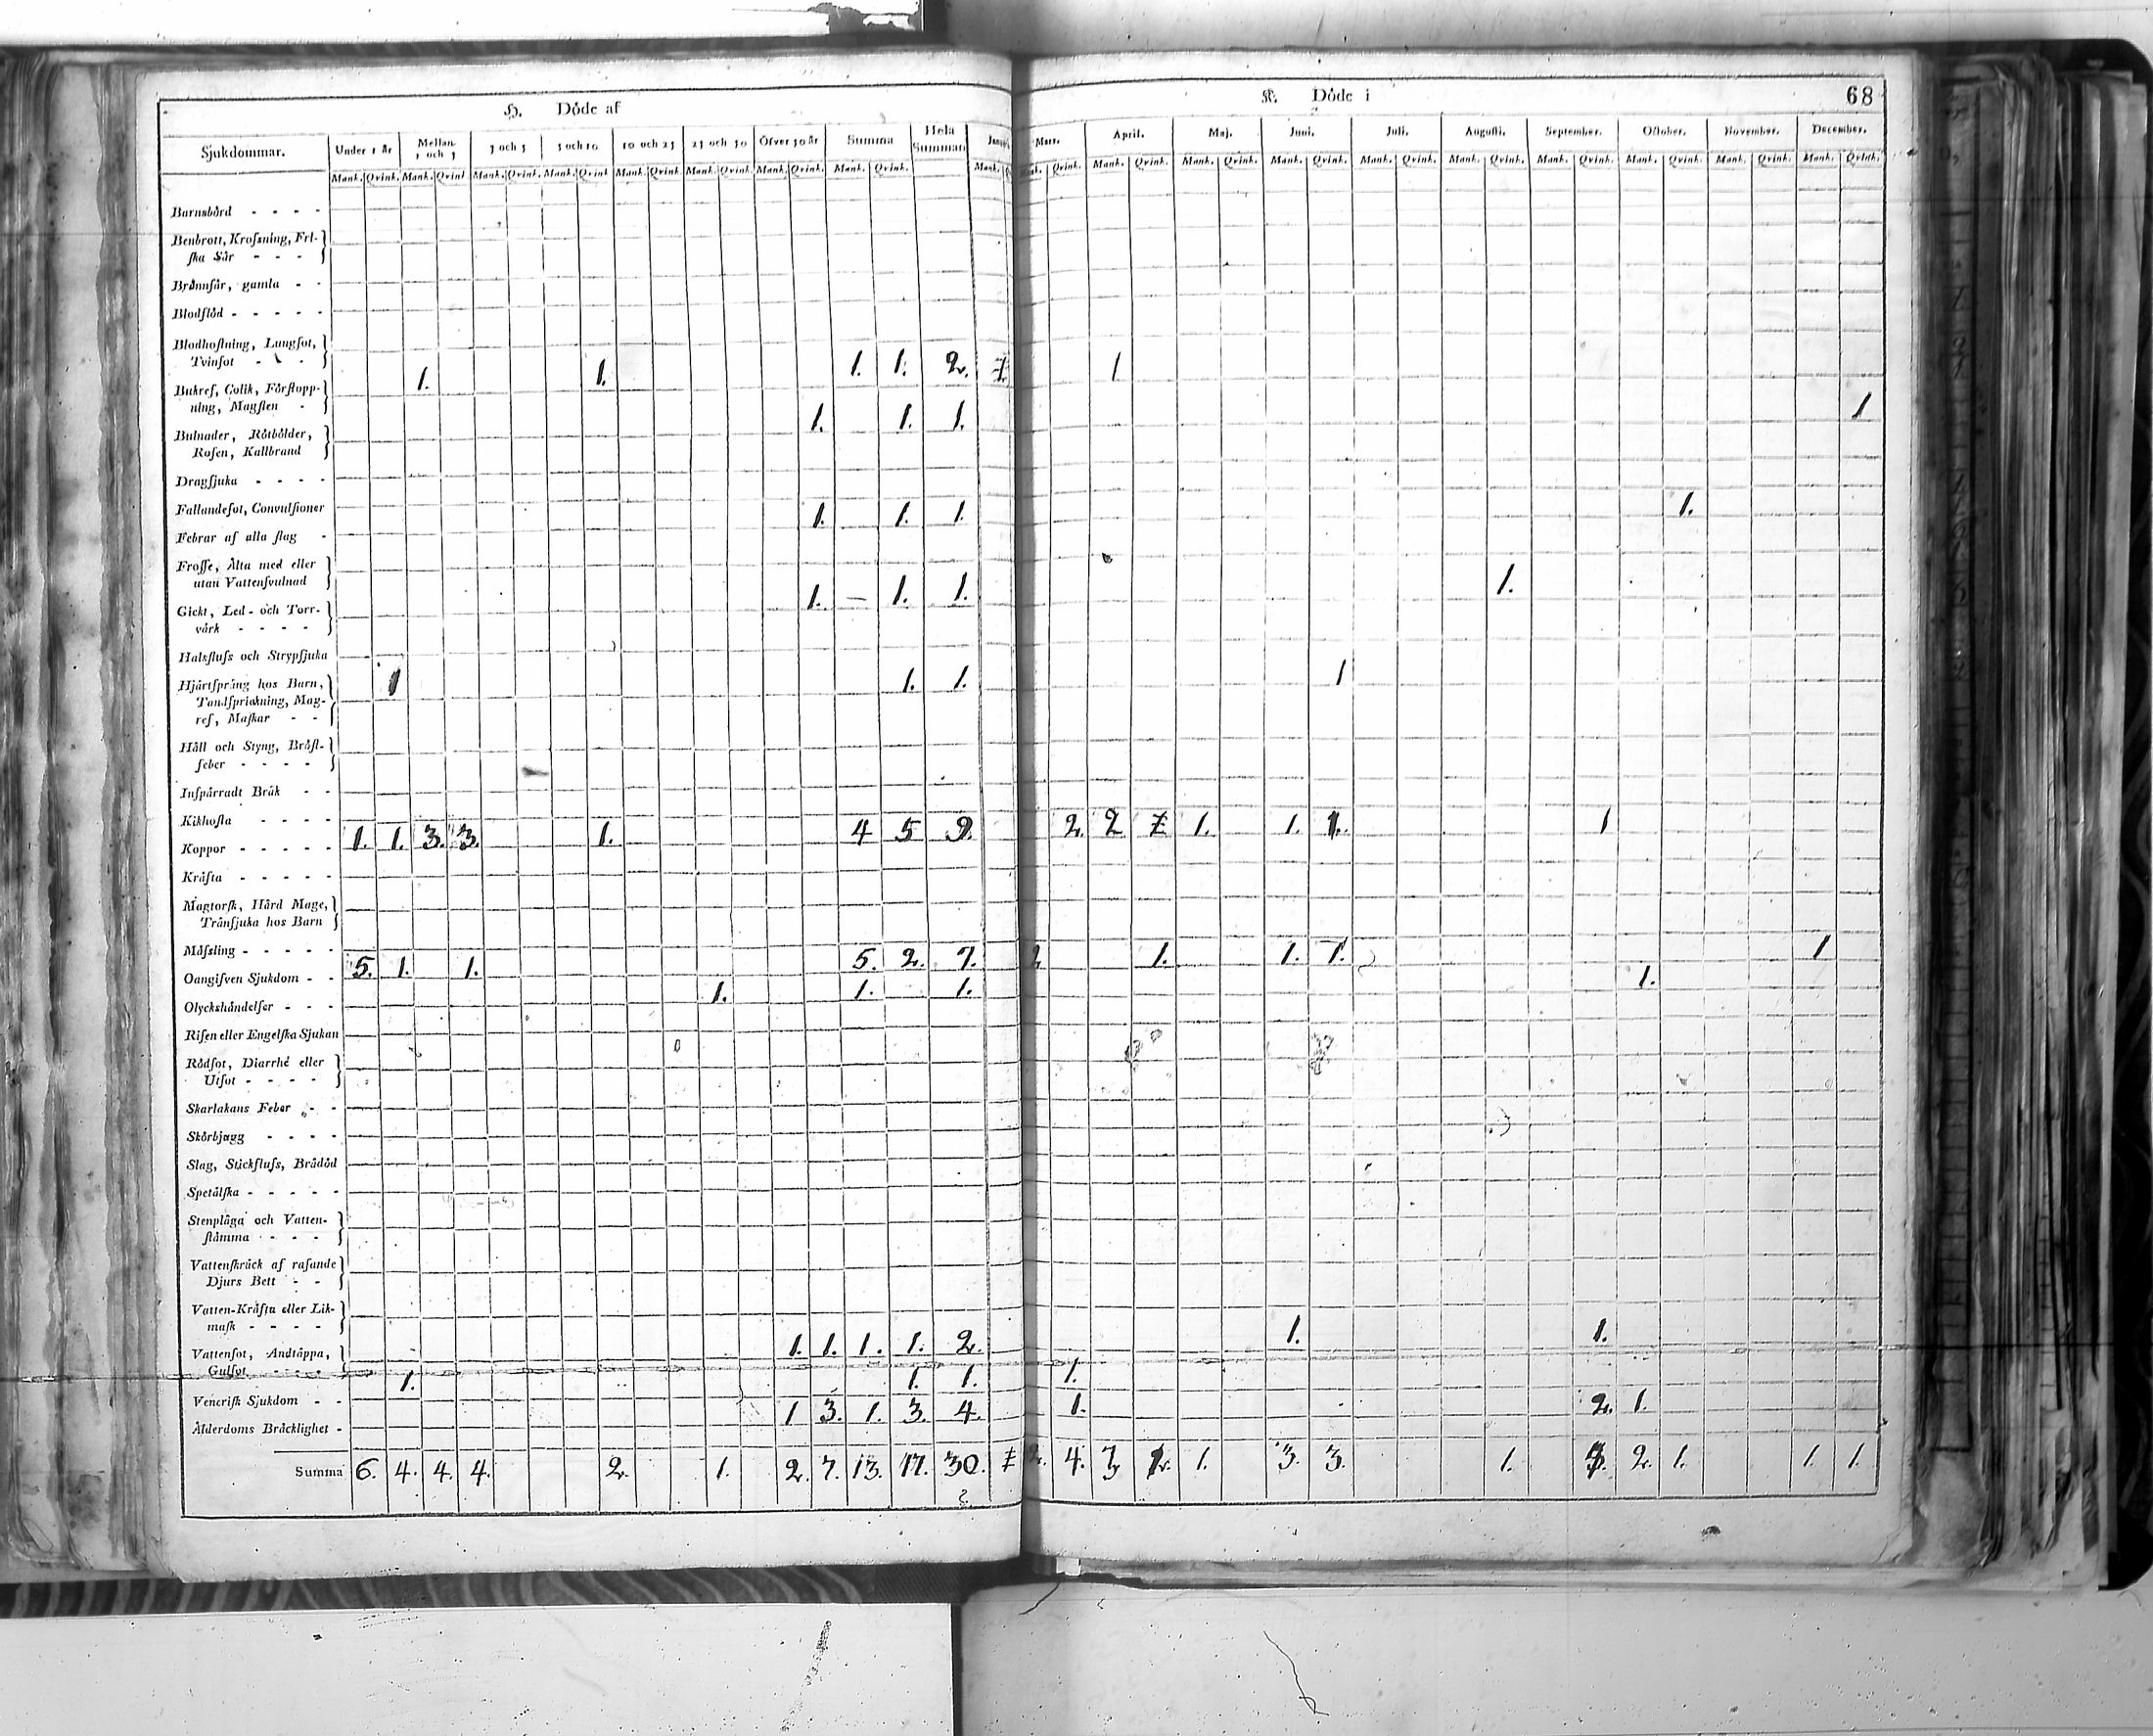 H. Döde af
K. Döde i 68
Sjukdommar. Under 1 år Mellan 1 och 3 3 och 5 5 och 10 10 och 25 25 och 50 Öfver 50 år Summa Hela Summan
Mars. April. Maj. Juni. Juli. Augusti. September. October. November. December.
Mank. Qvink. Mank. Qvink Mank. Qvink. Mank. Qvink Mank. Qvink. Mank. Qvink. Mank. Qvink. Mank. Qvink. Mank.
Qvink. Mank. Qvink. Mank. Qvink. Mank. Qvink. Mank. Qvink. Mank. Qvink. Mank. Qvink. Mank. Qvink. Mank. Qvink. Mank. Qvink.
Barnsbörd - - - -
Benbrott, Krossning, Fri-
ska Sår - - -
Brännsår, gamla - -
Blodflöd - - - - -
Blodhostning, Lungsot,
Tvinsot - - -
1. 1. 1. 1. 2. 1
Bukref, Colik, Förstopp-
ning, Magsten -
1. 1. 1. 1
Bulnader, Rötbölder,
Rosen, Kallbrand
Dragsjuka - - - -
Fallandesot, Convulsioner 1. 1. 1. 1.
Febrar af alla slag -
Frosse, Älta med eller
utan Vattensvulnad
1. — 1. 1. 1.
Gickt, Led- och Torr-
värk - - - -
Halsfluss och Strypsjuka
Hjärtsprång hos Barn, 1 1. 1. 1
Tandsprickning, Mag-
ref, Maskar - -
Håll och Styng, Bröst-
feber - - - -
Inspärradt Bråk - -
Kikhosta - - - -
1. 1. 3. 3. 1. 4 5 9. 2. 2 1. 1. 1. 1
Koppor - - - - -
Kräfta - - - - -
Magtorsk, Hård Mage,
Trånsjuka hos Barn
Mässling - - - - -
5. 1. 1. 5. 2. 7. 2 1. 1. 1. 1
Oangifven Sjukdom - -
1. 1. 1. 1.
Olyckshändelser - - -
Risen eller Engelska Sjukan
Rödsot, Diarrhé eller
Utsot - - - -
Skarlakans Feber - -
Skörbjugg - - - -
Slag, Stickfluss, Brådöd
Spetälska - - - - -
Stenplåga och Vatten-
stämma - - - -
Vattenskräck af rasande
Djurs Bett - -
Vatten-Kräfta eller Lik-
mask - - - -
1. 1. 1. 1. 2. 1. 1.
Vattensot, Andtäppa,
Gulsot - - - -
1. 1. 1. 1.
Venerisk Sjukdom - -
1 3. 1. 3. 4. 1. 2. 1.
Ålderdoms Bräcklighet -
Summa 6. 4. 4. 4. 2. 1. 2. 7. 13. 17. 30. 2. 4. 3 1. 3. 3. 1. 2. 1. 1. 1.